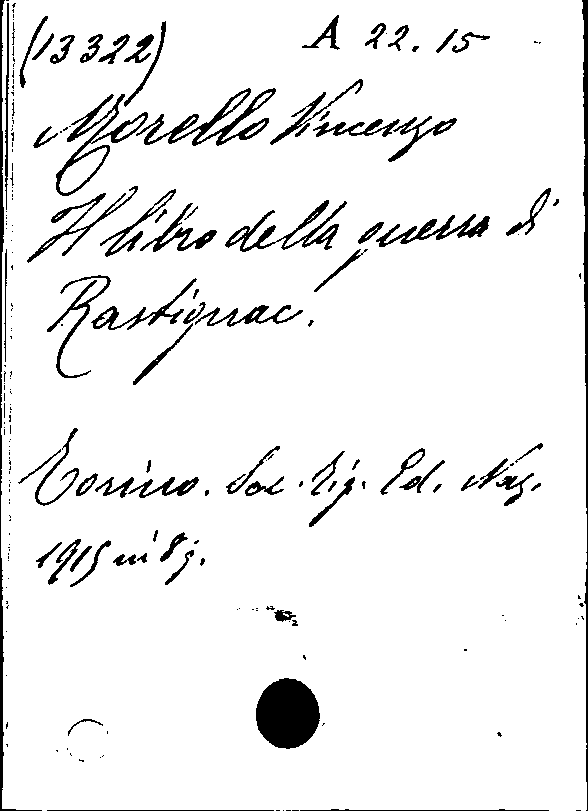 (13322) A 22.15
Morello Vincenzo
Il libro della guerra di
Rastignac.
Torino. Soc. Tip. Ed. Naz.
1915 in 8g.